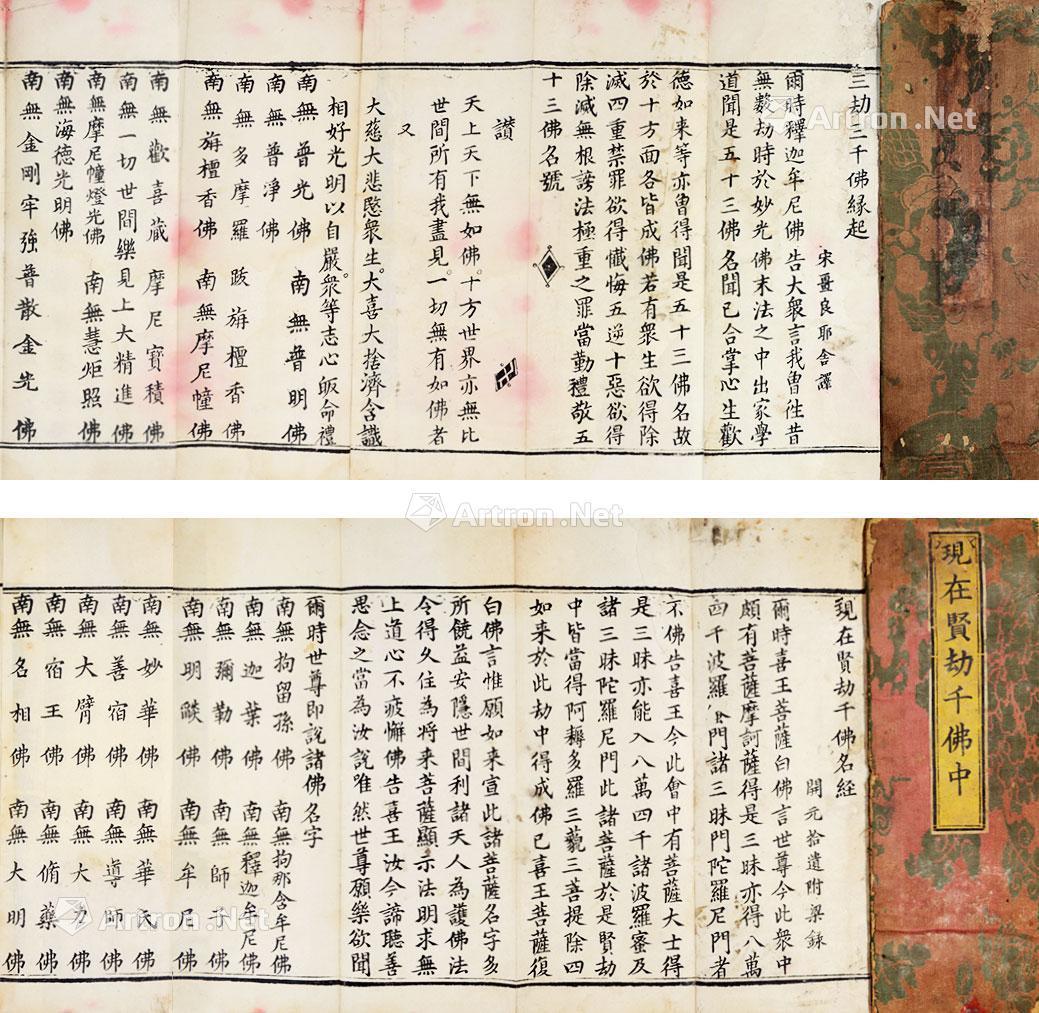 三劫三千佛緣起
宋畺良耶舍譯
爾時釋迦牟尼佛告大衆言我曾徃昔
無數劫時於妙光佛末法之中出家學
道聞是五十三佛名聞已合掌心生歡
德如来等亦曾得聞是五十三佛名故
於十方面各皆成佛若有衆生欲得除
滅四重禁罪欲得懺悔五逆十惡欲得
除滅無根謗法極重之罪當勤禮敬五
十三佛名號
讃
天上天下無如佛。十方世界亦無比
世間所有我盡見。一切無有如佛者
又
大慈大悲愍衆生。大喜大捨濟含識
相好光明以自嚴。衆等志心皈命禮
南無普光佛 南無普明佛
南無普淨佛
南無多摩羅跋旃檀香佛
南無旃檀香佛 南無摩尼幢佛
南無歡喜藏摩尼寶積佛
南無一切世間樂見上大精進佛
南無摩尼幢燈光佛 南無慧炬照佛
南無海德光明佛
南無金剛牢強普散金光佛
現在賢劫千佛中
現在賢劫千佛名経
開元拾遺附梁錄
爾時喜王菩薩白佛言世尊今此衆中
頗有菩薩摩訶薩得是三昧亦得八萬
四千波羅門諸三昧門陀羅尼門者
不佛告喜王今此會中有菩薩大士得
是三昧亦能入八萬四千諸波羅蜜及
諸三昧陀羅尼門此諸菩薩於是賢劫
中皆當得阿耨多羅三藐三菩提除四
如来於此劫中得成佛已喜王菩薩復
白佛言惟願如来宣此諸菩薩名字多
所饒益安隱世間利諸天人為護佛法
令得久住為将来菩薩顯示法明求無
上道心不疲懈佛告喜王汝今諦聽善
思念之當為汝說唯然世尊願樂欲聞
爾時世尊即說諸佛名字
南無拘留孫佛 南無拘那含牟尼佛
南無迦葉佛 南無釋迦牟尼佛
南無彌勒佛 南無師子佛
南無明燄佛 南無牟尼佛
南無妙華佛 南無華氏佛
南無善宿佛 南無導師佛
南無大臂佛 南無大力佛
南無宿王佛 南無脩藥佛
南無名相佛 南無大明佛
Artron.Net
Artron.Net
Artron.Net
Artron.Net
Artron.Net